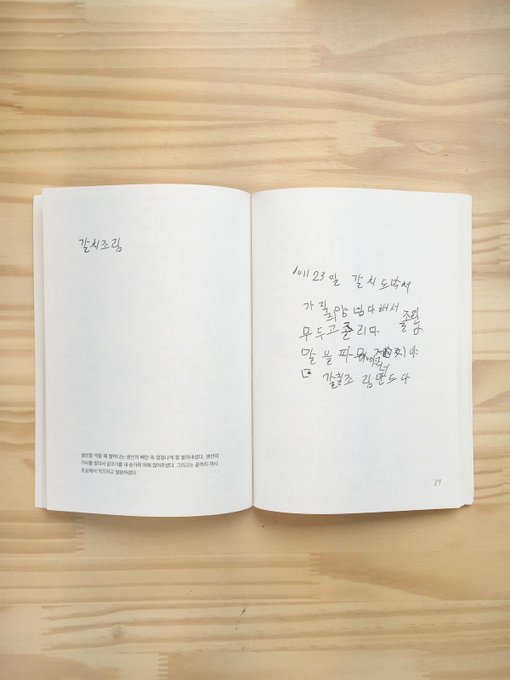 갈치조림
생선을 먹을 때 할머니는 생선의 뼈만 쏙 엄청나게 잘 발라내셨다. 생선의
가시를 발라서 살코기를 내 숟가락 위에 얹어주셨다. 그리고는 끝까지 가시
조심해서 먹으라고 말씀하셨다.
23일 갈치 드막서
양념다해서 조림
무두고졸리다
말 블 파
갈칠조 림만드다
37